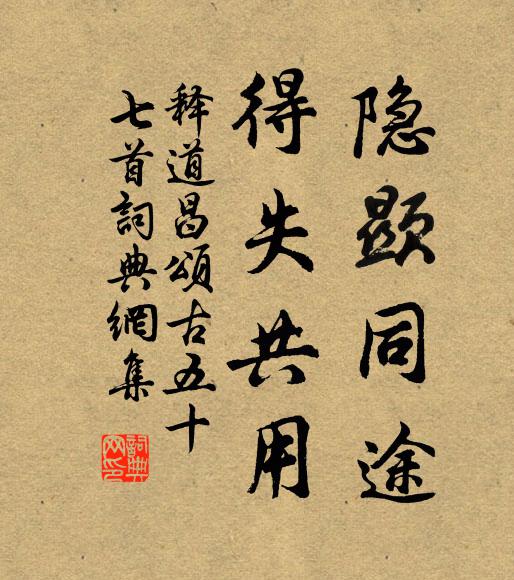 隐顕同途
得失共用
释道昌頌古五十
七首詞典網集
詞典
网印